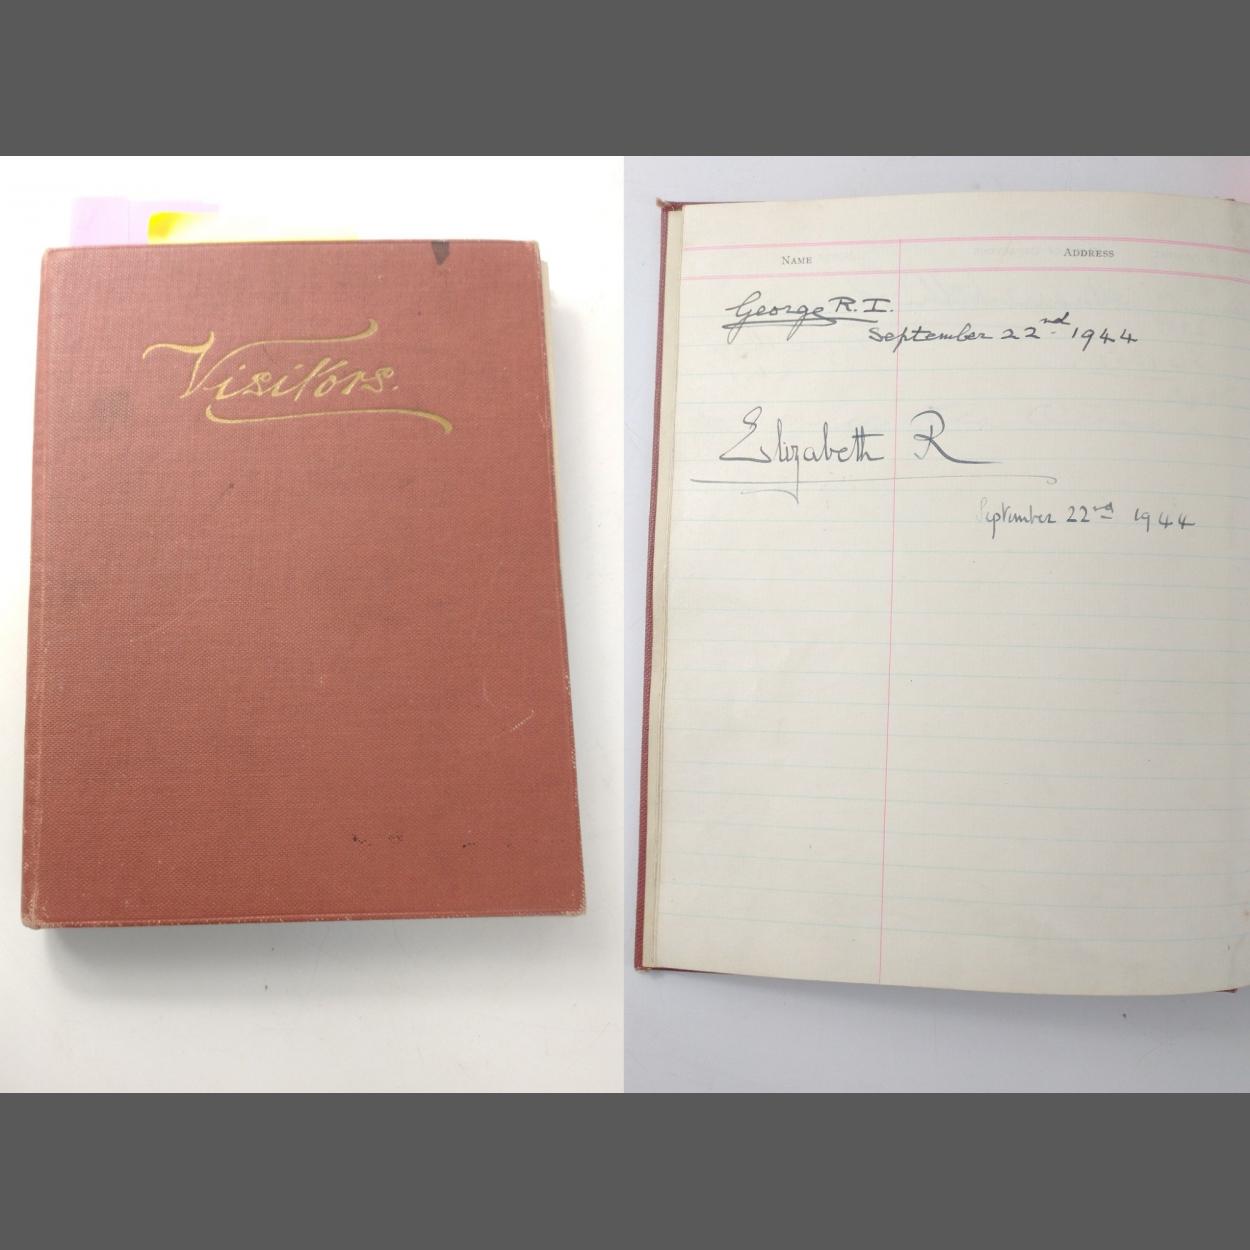 Visitors.
NAME ADDRESS
George R.I.
September 22nd 1944
Elizabeth R
September 22nd 1944